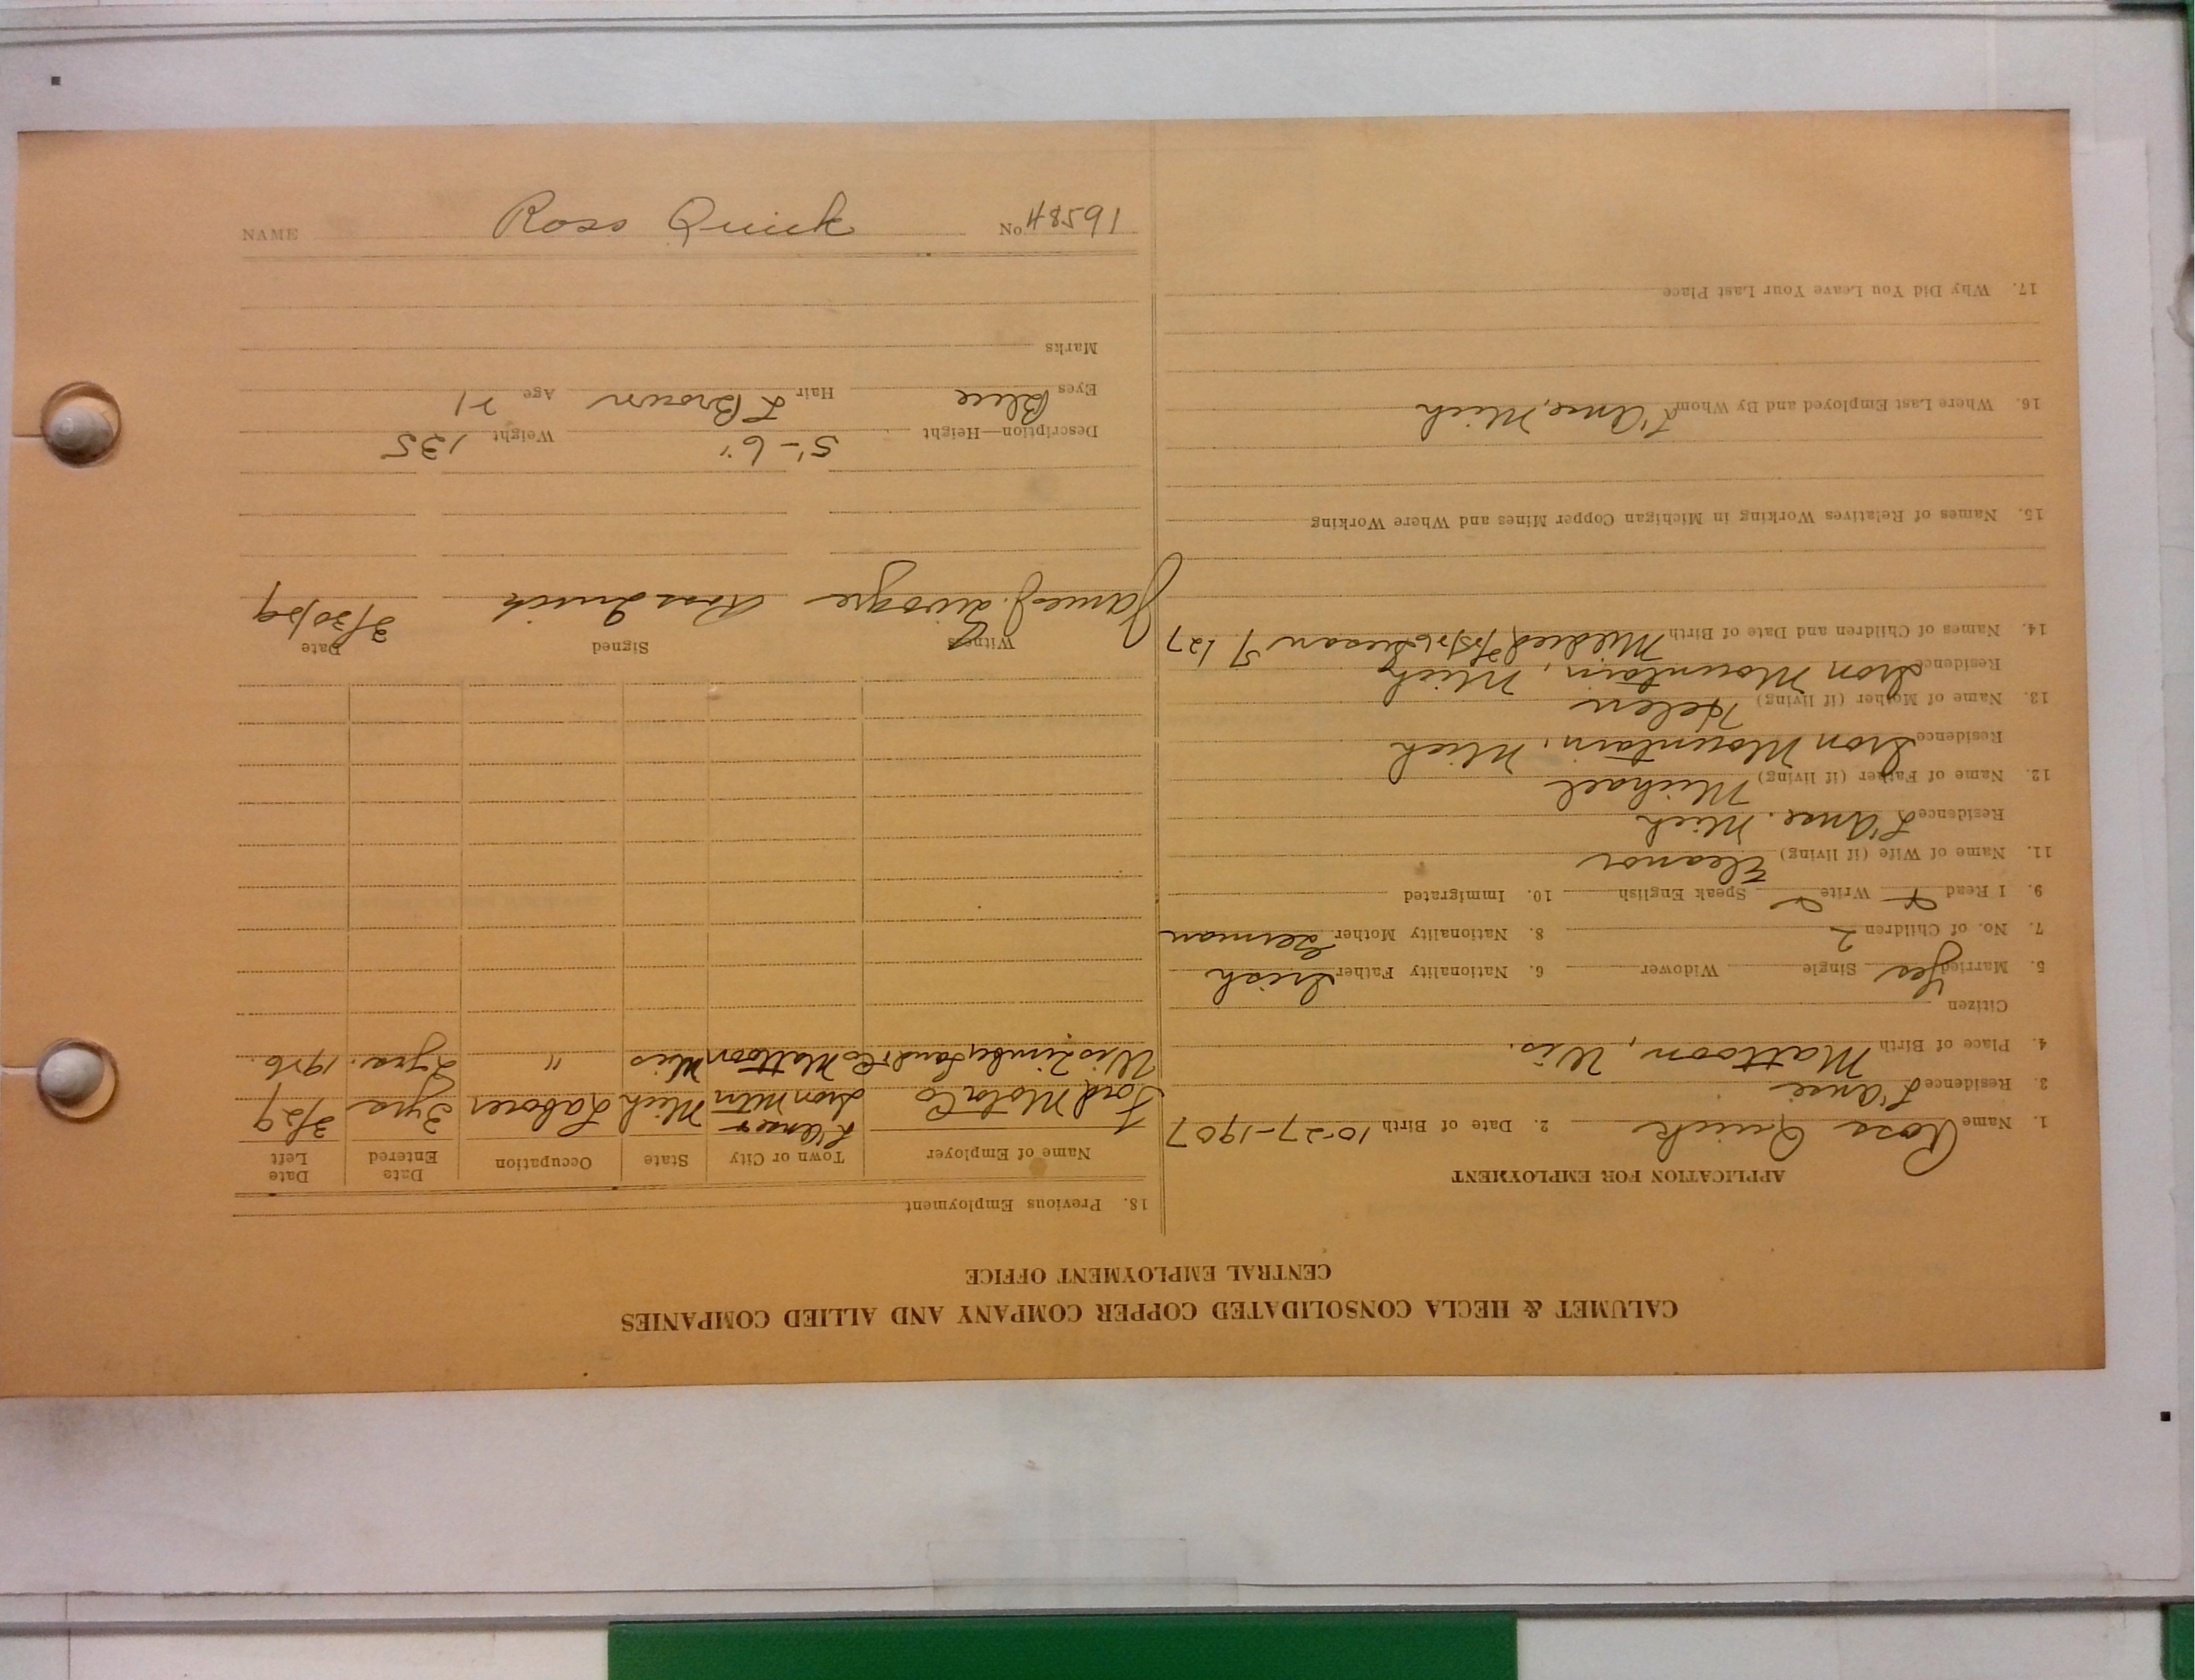 CALUMET & HECLA CONSOLIDATED COPPER COMPANY AND ALLIED COMPANIES
CENTRAL EMPLOYMENT OFFICE
APPLICATION FOR EMPLOYMENT
1. Name Ross Quick 2. Date of Birth 10-27-1907
3. Residence L'Anse
4. Place of Birth Mattoon, Wis.
Citizen
5. Married Yes Single Widower 6. Nationality Father Irish
7. No. of Children 2 8. Nationality Mother German
9. I Read Write Speak English 10. Immigrated
11. Name of Wife (if living) Eleanor
Residence L'Anse. Mich
12. Name of Father (if living) Michael
Residence Iron Mountain, Mich
13. Name of Mother (if living) Helen
Residence Iron Mountain, Mich
14. Names of Children and Date of Birth
15. Names of Relatives Working in Michigan Copper Mines and Where Working
16. Where Last Employed and By Whom L'Anse, Mich
17. Why Did You Leave Your Last Place
18. Previous Employment
Name of Employer Town or City State Occupation Date Entered Date Left
Ford Motor Co L'Anse + Iron Mtn Mich Laborer 3 yrs 3/29
Wis Timber Land Co Mattoon Wis " 2 yrs. 1926
Witness Signed Date
James Ross Quick 3/30/29
Description—Height 5'-6" Weight 135
Eyes Blue Hair L Brown Age 21
Marks
NAME Ross Quick No. 48591